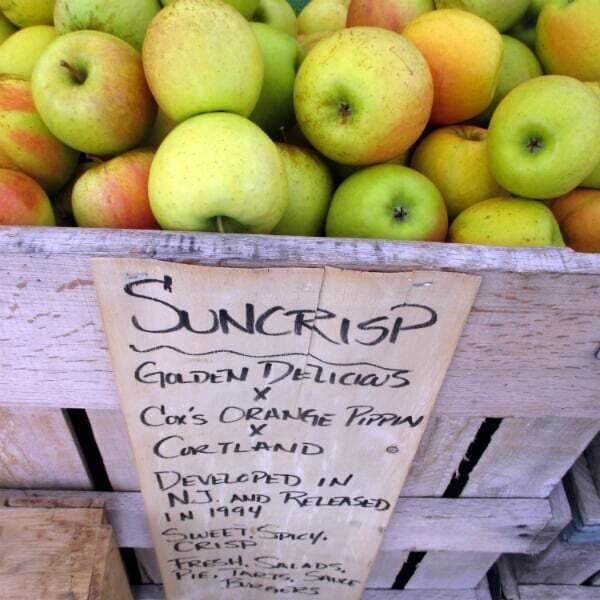 SUNCRISP
GOLDEN DELICIOUS
X
COX'S ORANGE PIPPIN
X
CORTLAND
DEVELOPED IN
N.J. AND RELEASED
IN 1994
SWEET, SPICY,
CRISP
FRESH, SALADS,
PIE, TARTS, SAUCE